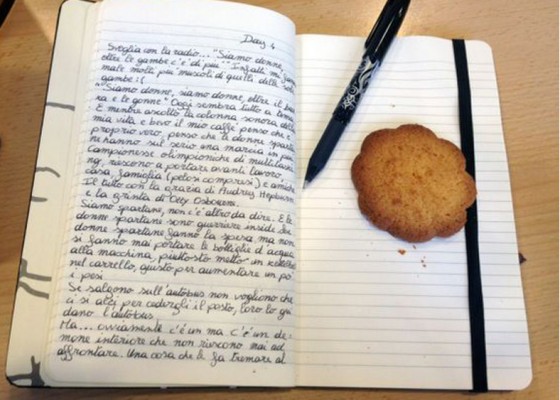 Day 4
Sveglia con la radio... "Siamo donne,
oltre le gambe c'è di più" Infatti, mi fanno
male molti più muscoli di quelli delle sole
gambe :(
"Siamo donne, siamo donne, oltre il
ra e le gonne" Oggi sembra tutto a tema
E mentre ascolto la colonna sonora della
mia vita e bevo il mio caffè penso che è
proprio vero, penso che le donne sparta
ne hanno sul serio una marcia in più
Campionesse olimpioniche di multitaski
ng, riescono a portare avanti lavoro,
casa, famiglia (pelosi compresi) e amiche
Il tutto con la grazia di Audrey Hepburn
e la grinta di Ozzy Osbourne.
Siamo spartane, non c'è altro da dire. E le
donne spartane sono guerriere inside. Le
donne spartane fanno la spesa ma non
si fanno mai portare le bottiglie d'acqua
alla macchina, piuttosto metto in
nel carrello, giusto per aumentare un po'
i pesi.
Se salgono sull'autobus non vogliono che
ci si alzi per cedergli il posto, loro lo gui
dano l'autobus.
Ma... ovviamente c'è un ma. C'è un de-
mone interiore che non riescono mai ad
affrontare. Una cosa che le fa tremare al